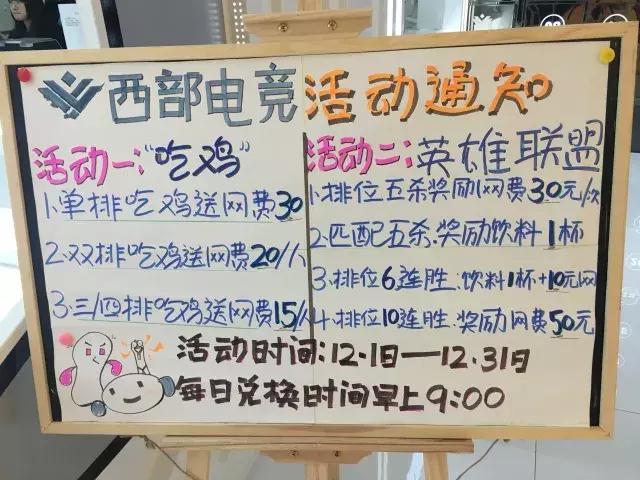 西部电竞活动通知
活动一:“吃鸡”
1.单排吃鸡送网费30
2.双排吃鸡送网费20/人
3.三/四排吃鸡送网费15/人
活动二:英雄联盟
1.排位五杀奖励网费30元/次
2.匹配五杀.奖励饮料1杯
3.排位6连胜:饮料1杯+10元网
4.排位10连胜:奖励网费50元
活动时间:12.1日—12.31日
每日兑换时间早上9:00